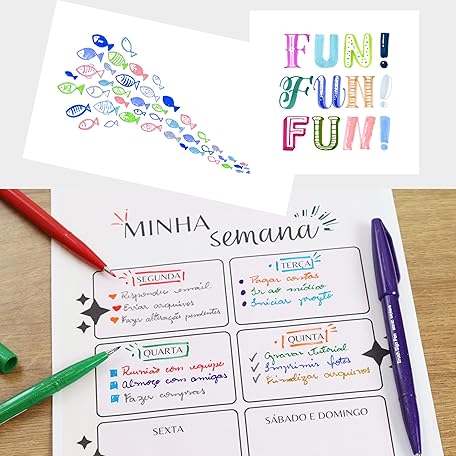 FUN!
FUN!
FUN!
MINHA semana
SEGUNDA
Responder email
Enviar arquivos
Fazer alteração pendentes
TERÇA
Pagar contas
Ir ao médico
Iniciar projeto
QUARTA
Reunião com equipe
Almoço com amigas
Fazer compras
QUINTA
Gravar tutorial
Imprimir fotos
Finalizar arquivos
SEXTA
SÁBADO E DOMINGO
Brush Sign Pen